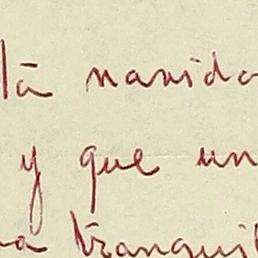 tà navida
y que un
a tranquil